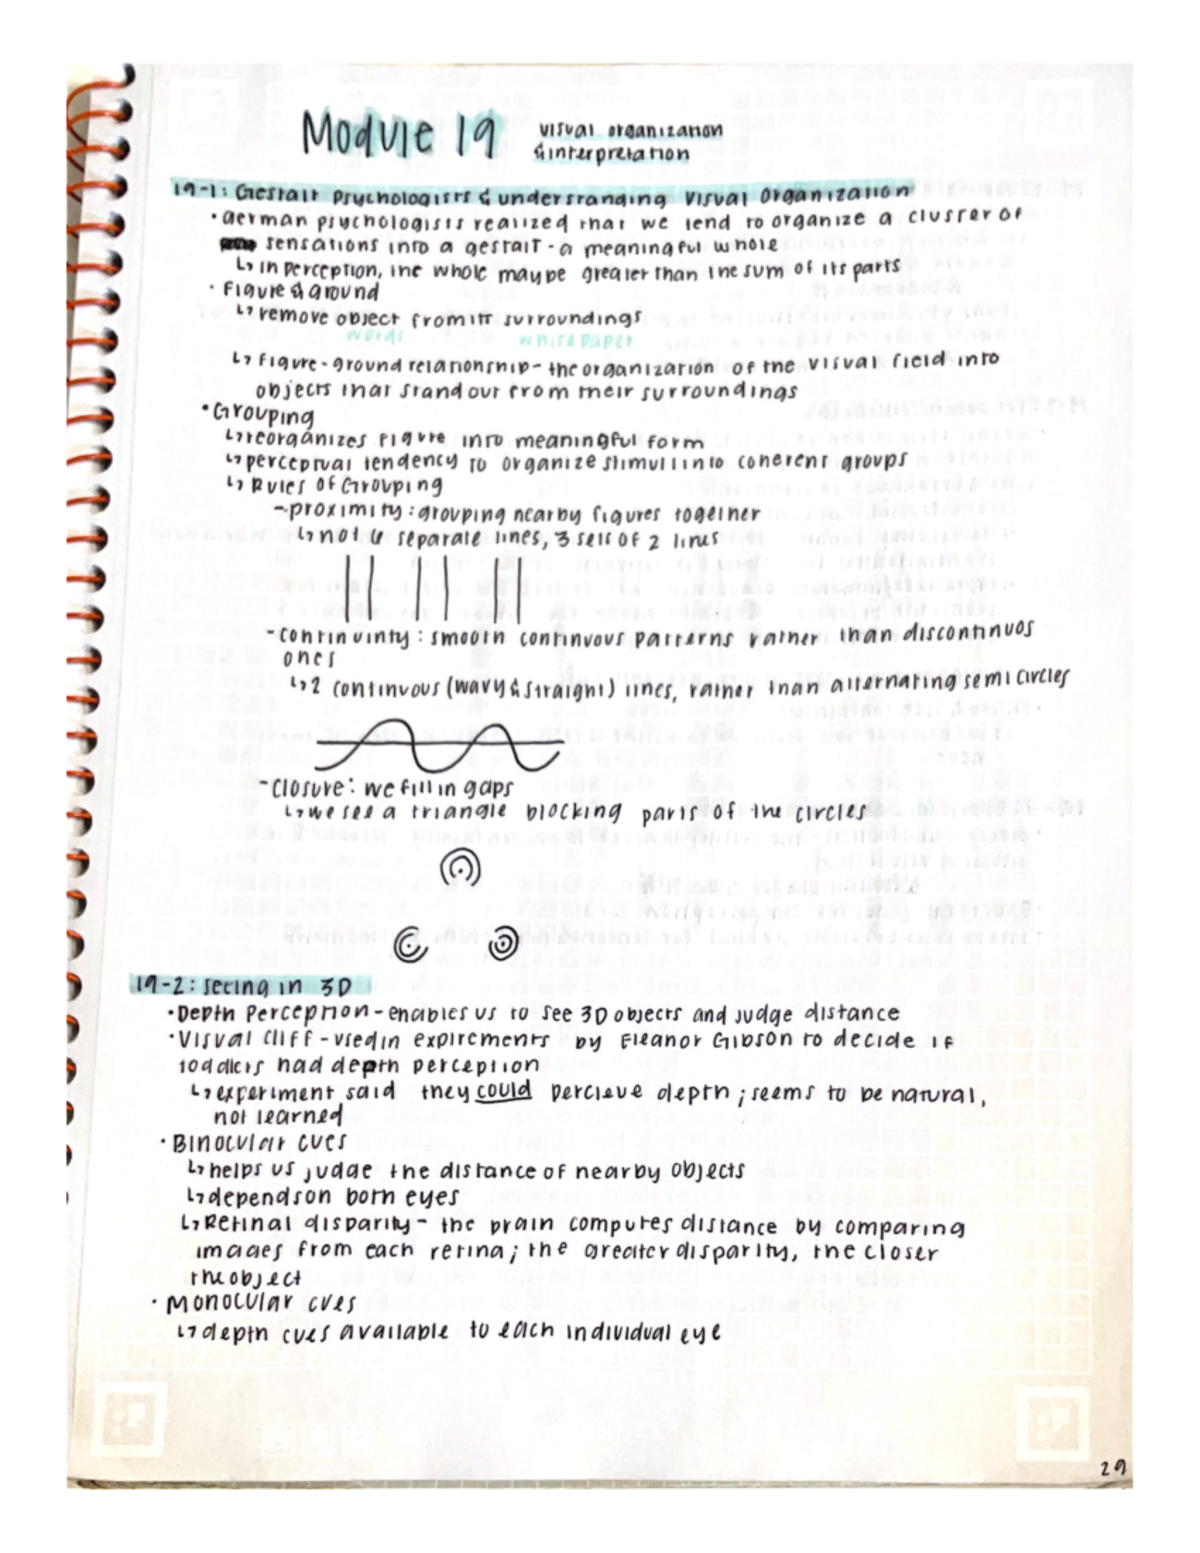 Module 19 visual organization
& interpretation
19-1: Gestalt Psychologists & understanding Visual Organization
• German psychologists realized that we tend to organize a cluster of
sensations into a gestalt - a meaningful whole
↳ in perception, the whole may be greater than the sum of its parts
• Figure & ground
↳ remove object from it surroundings
words white paper
↳ figure-ground relationship - the organization of the visual field into
objects that stand out from their surroundings
• Grouping
↳ reorganizes figure into meaningful form
↳ perceptual tendency to organize stimuli into coherent groups
↳ Rules of Grouping
- proximity: grouping nearby figures together
↳ not 6 separate lines, 3 sets of 2 lines
- continuinty: smooth continuous patterns rather than discontinuos
ones
↳ 2 continuous (wavy & straight) lines, rather than alternating semi circles
- Closure: we fill in gaps
↳ we see a triangle blocking parts of the circles
19-2: seeing in 3D
• Depth Perception - enables us to see 3D objects and judge distance
• Visual Cliff - used in expirements by Eleanor Gibson to decide if
toddlers had depth perception
↳ experiment said they could percieve depth; seems to be natural,
not learned
• Binocular cues
↳ helps us judge the distance of nearby objects
↳ depends on both eyes
↳ Retinal disparity - the brain computes distance by comparing
images from each retina; the greater disparity, the closer
the object
• Monocular cues
↳ depth cues available to each individual eye
29